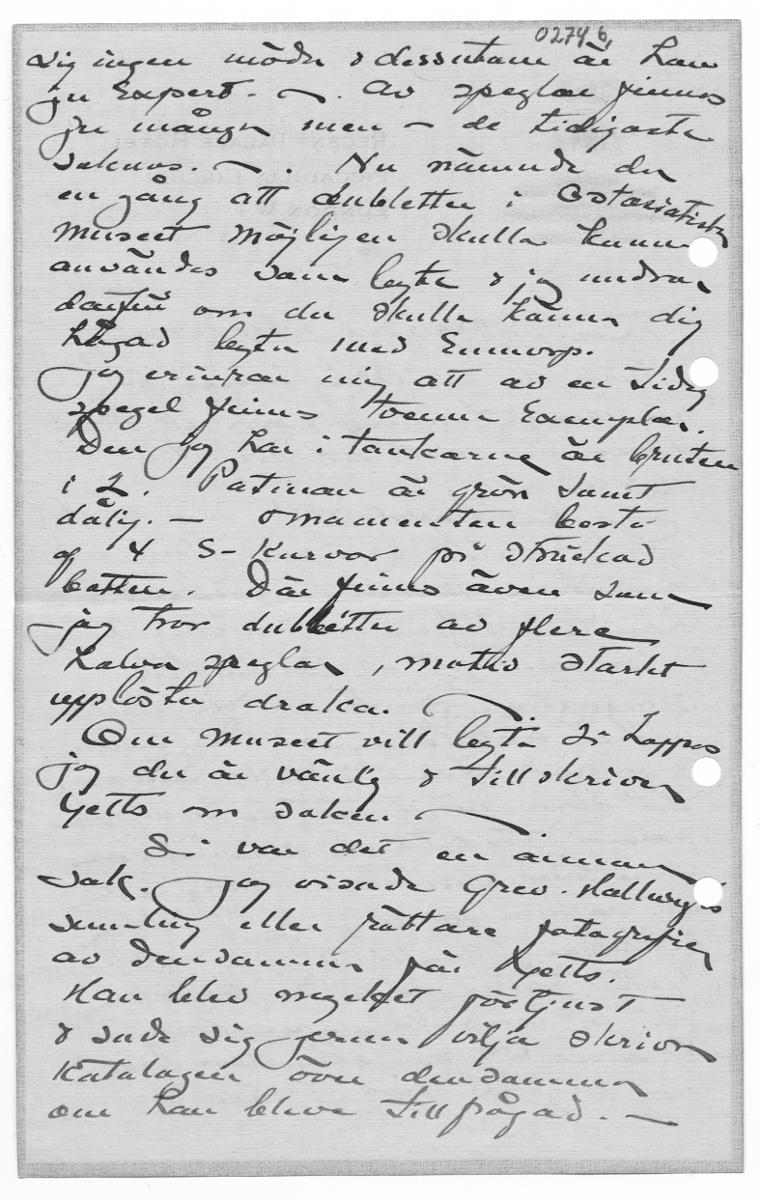 0274 b,
sig ingen möda & dessutom är han
ju Expert. — . Av speglar finnes
ju många men — de tidigaste
saknas. — . Nu nämnde du
en gång att dubletter i Ostasiatiska
museet möjligen skulle kunna
användes som byte & jag undrar
därför om du skulle känna dig
hågad byta med Eumorp.
Jag erinrar mig att av en tidig
spegel finns tvenne Exemplar.
Den jag har i tankarne är bruten
i 2. Patinan är grön samt
dålig. — Ornamenten bestå
af 4 S-Kurvor på streckad
botten. Där finns även som
jag tror dubletter av flere
halva speglar, motiv starkt
upplösta drakar.
Om museet vill byta så hoppas
jag du är vänlig & tillskriver
Yetts om saken
Så var det en annan
sak. Jag visade Grev. Hallwyls
samling eller rättare fotografier
av densamma för Yetts.
Han blev mycket förtjust
& sade sig gerna vilja skriva
Katalogen över densamma
om han bleve tillfrågad. —